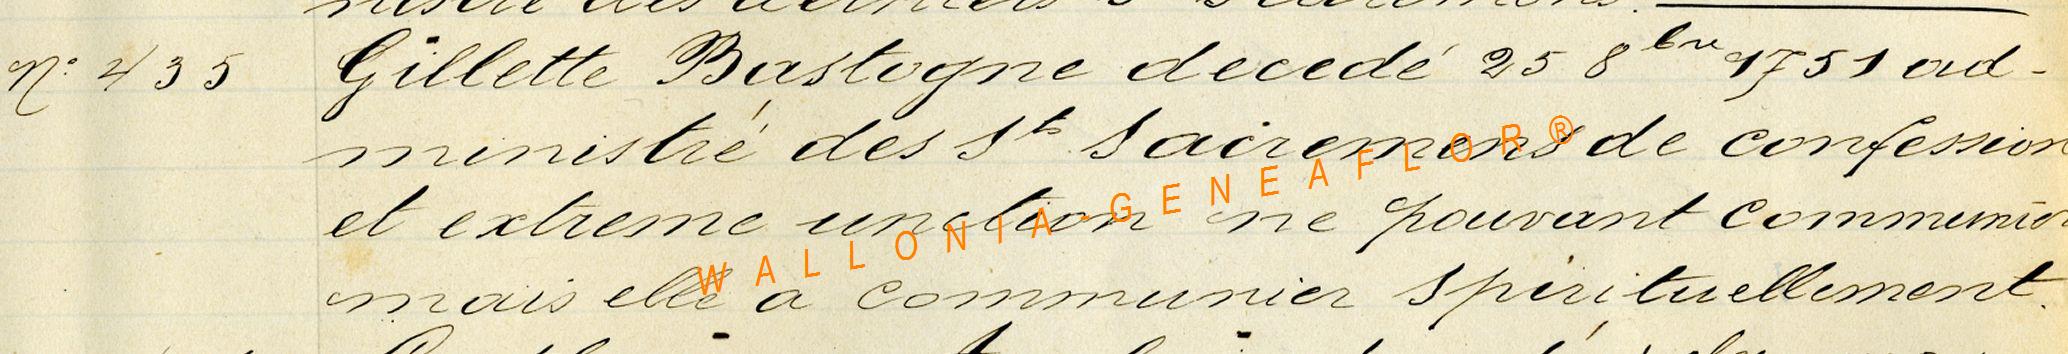 Nº 435 Gillette Bastogne decedé 25 8bre 1751 ad-
ministré des St Sacremens de confession
et extreme unction ne pouvant communier
mais elle a communier spirituellement.
WALLONIA-GENEAFLOR®